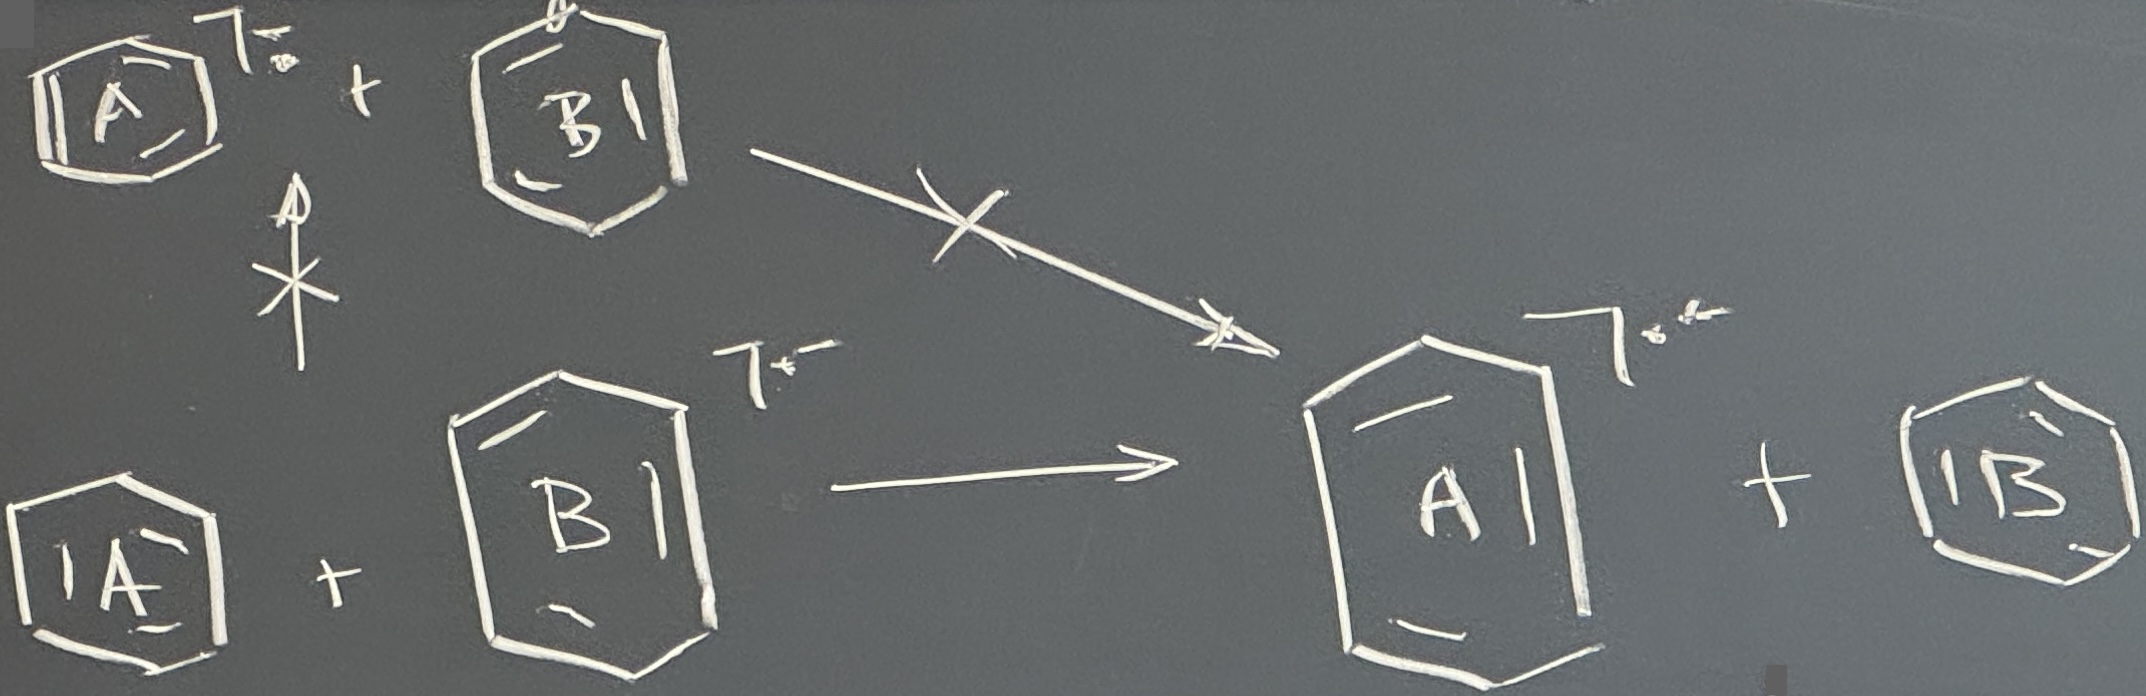 A + B
A + B A + B